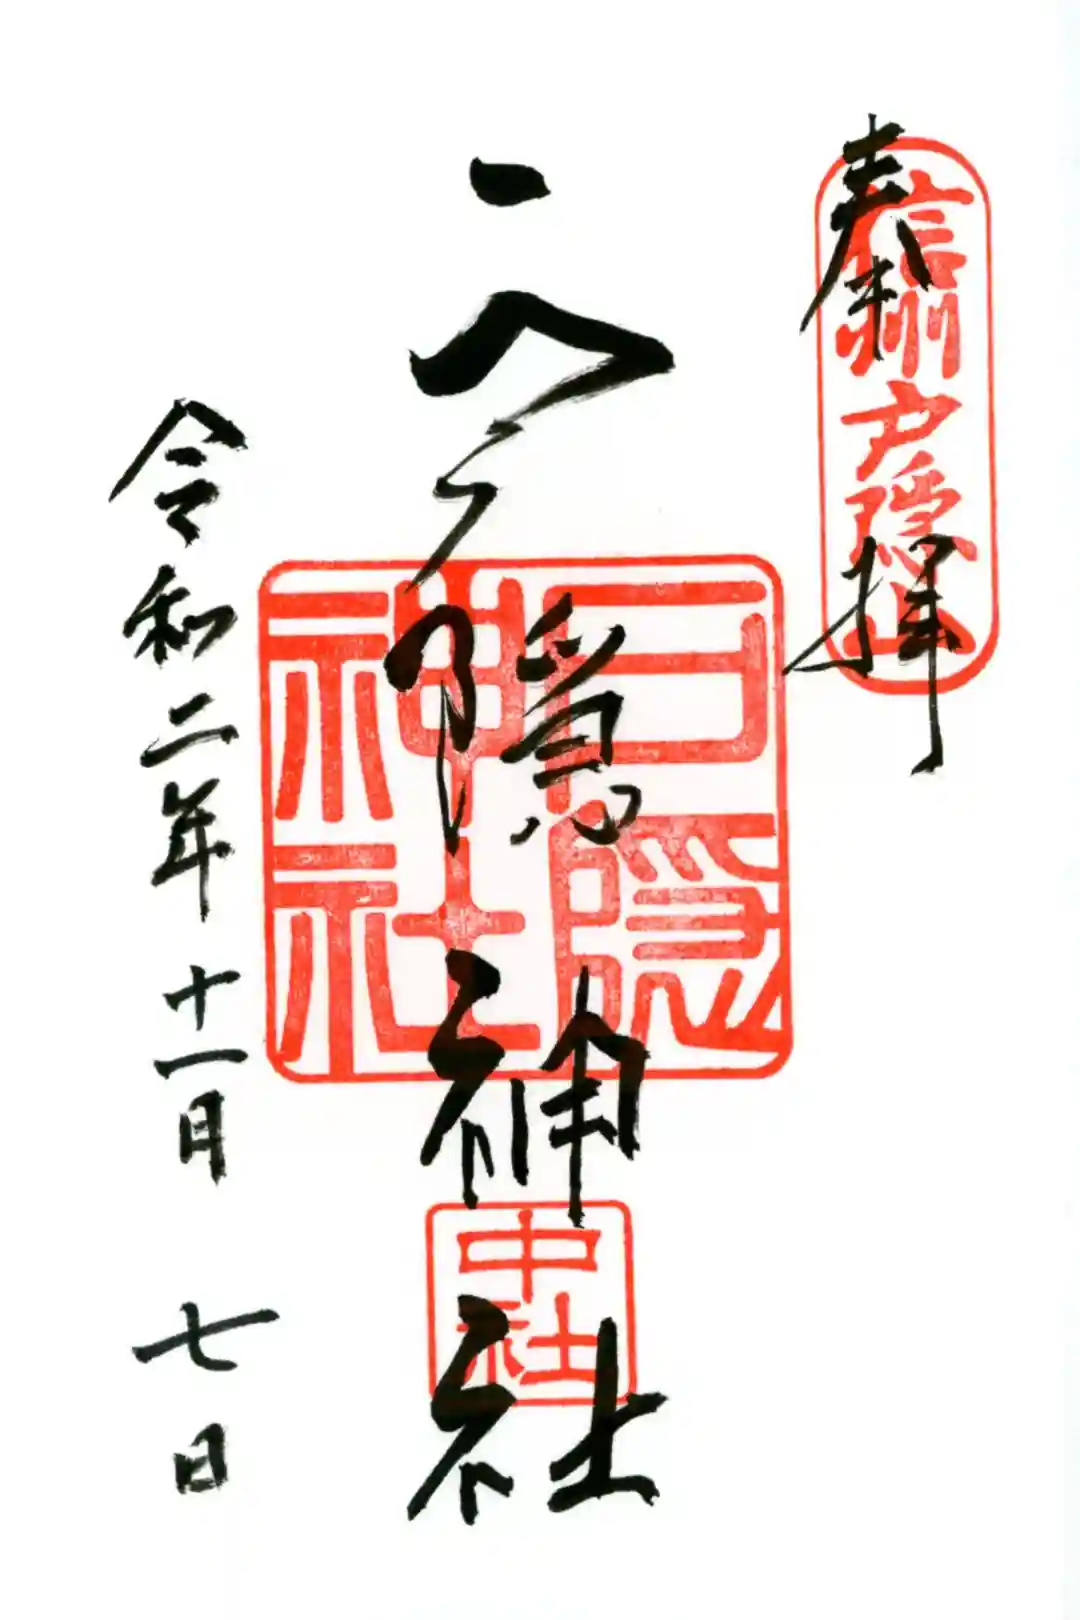 奉拝
信州戸隠山
戸隠神社
戸隠
神社
中社
令和二年十一月七日